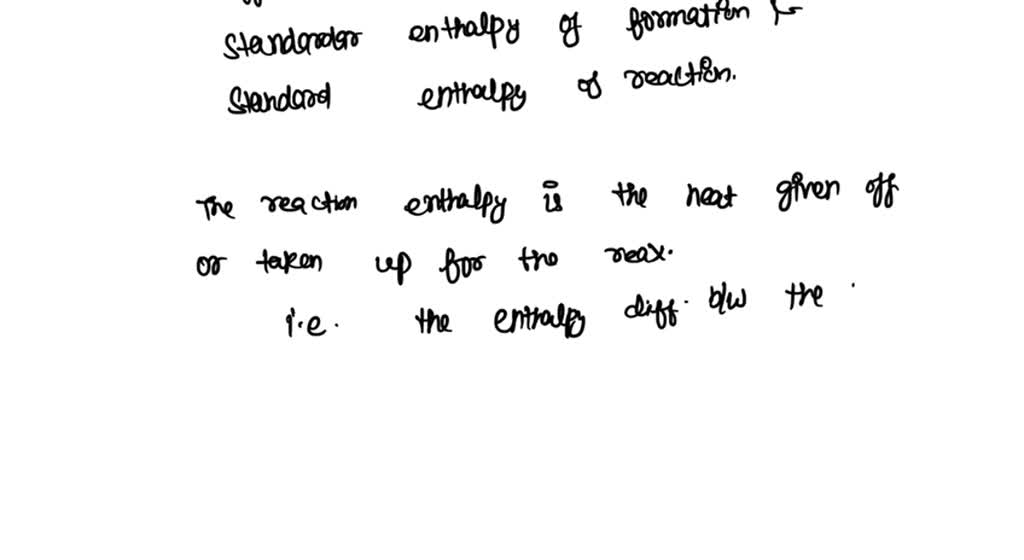 Standarder enthalpy of formation &
Standard enthalpy of reaction.
The reaction enthalpy is the heat given off
or taken up for the reax.
i.e. the enthalpy diff. b/w the